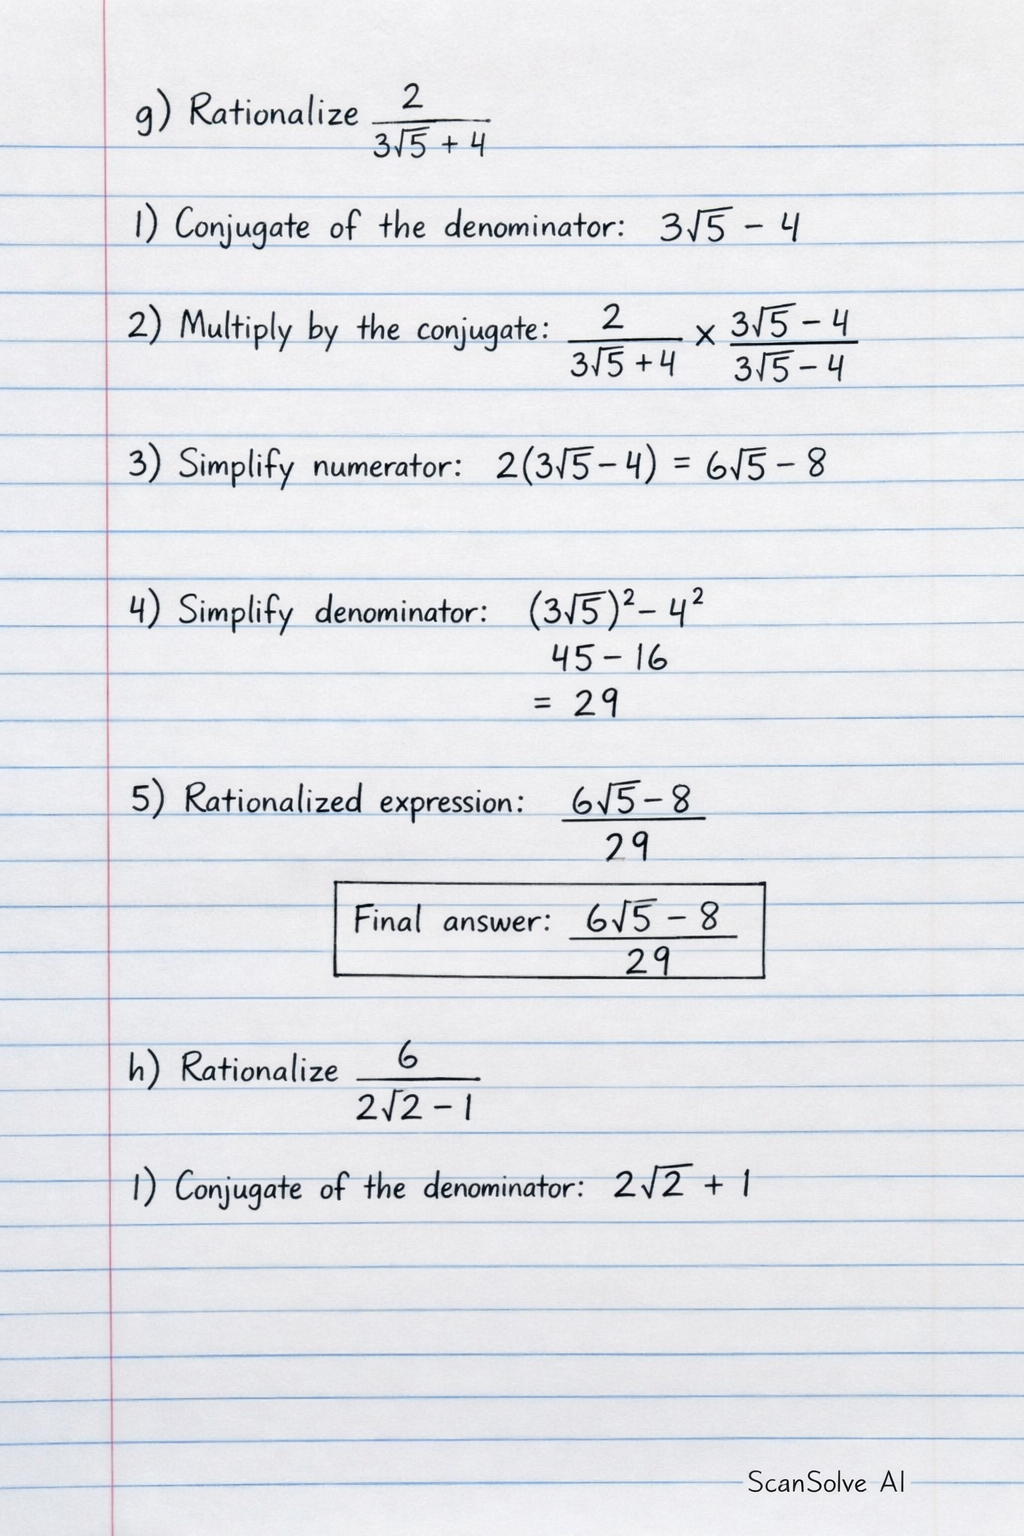 g) Rationalize 2/(3√5 + 4)
1) Conjugate of the denominator: 3√5 − 4
2) Multiply by the conjugate: 2/(3√5 + 4) × (3√5 − 4)/(3√5 − 4)
3) Simplify numerator: 2(3√5 − 4) = 6√5 − 8
4) Simplify denominator: (3√5)² − 4²
45 − 16
= 29
5) Rationalized expression: (6√5 − 8)/29
Final answer: (6√5 − 8)/29
h) Rationalize 6/(2√2 − 1)
1) Conjugate of the denominator: 2√2 + 1
ScanSolve AI